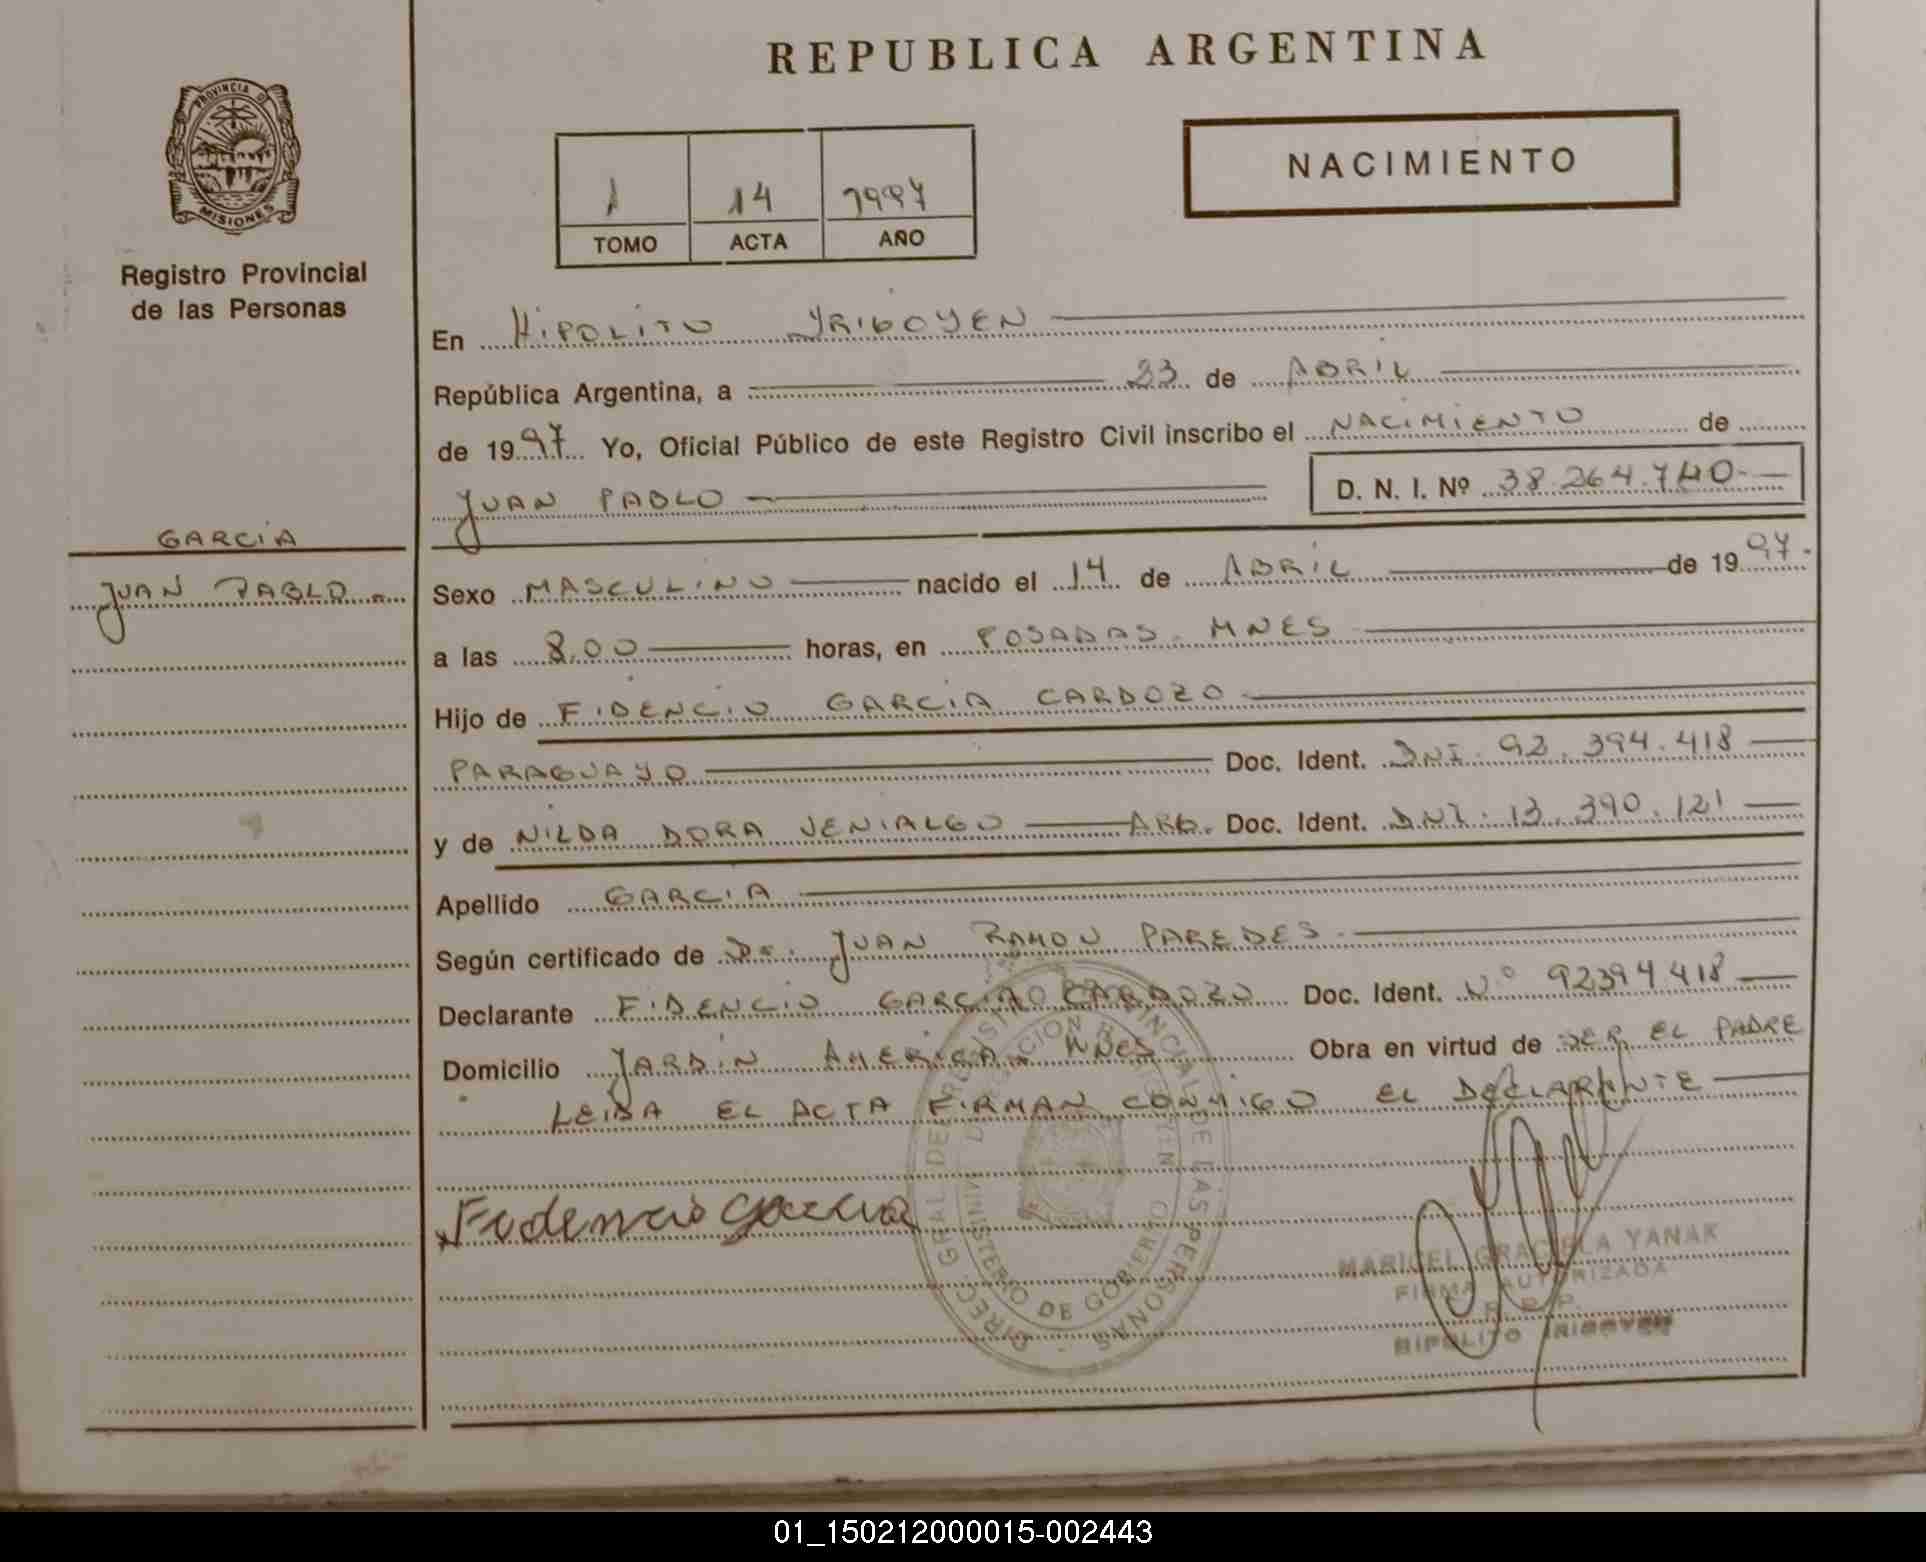 REPUBLICA ARGENTINA
PROVINCIA DE
MISIONES
Registro Provincial
de las Personas
NACIMIENTO
1 14 1997
TOMO ACTA AÑO
En HIPOLITO YRIGOYEN
República Argentina, a 23 de ABRIL
de 1997 Yo, Oficial Público de este Registro Civil inscribo el NACIMIENTO de
JUAN PABLO D. N. I. Nº 38.264.740
GARCIA
JUAN PABLO
Sexo MASCULINO nacido el 14 de ABRIL de 1997.
a las 8,00 horas, en POSADAS. MNES
Hijo de FIDENCIO GARCIA CARDOZO
PARAGUAYO Doc. Ident. DNI. 92.394.418
y de NILDA DORA VENIALGO ARG. Doc. Ident. DNI. 13.390.121
Apellido GARCIA
Según certificado de Dr. JUAN RAMON PAREDES
Declarante FIDENCIO GARCIA CARDOZO Doc. Ident. Nº 92394418
Domicilio JARDIN AMERICA. MNES Obra en virtud de SER EL PADRE
LEIDA EL ACTA FIRMAN CONMIGO EL DECLARANTE
Fidencio Garcia
DIREC. GRAL DEL REGISTRO PROVINCIAL DE LAS PERSONAS
MINISTERIO DE GOBIERNO
MARICEL GRACIELA YANAK
FIRMA AUTORIZADA
R. P. P.
HIPOLITO IRIGOYEN
01_150212000015-002443